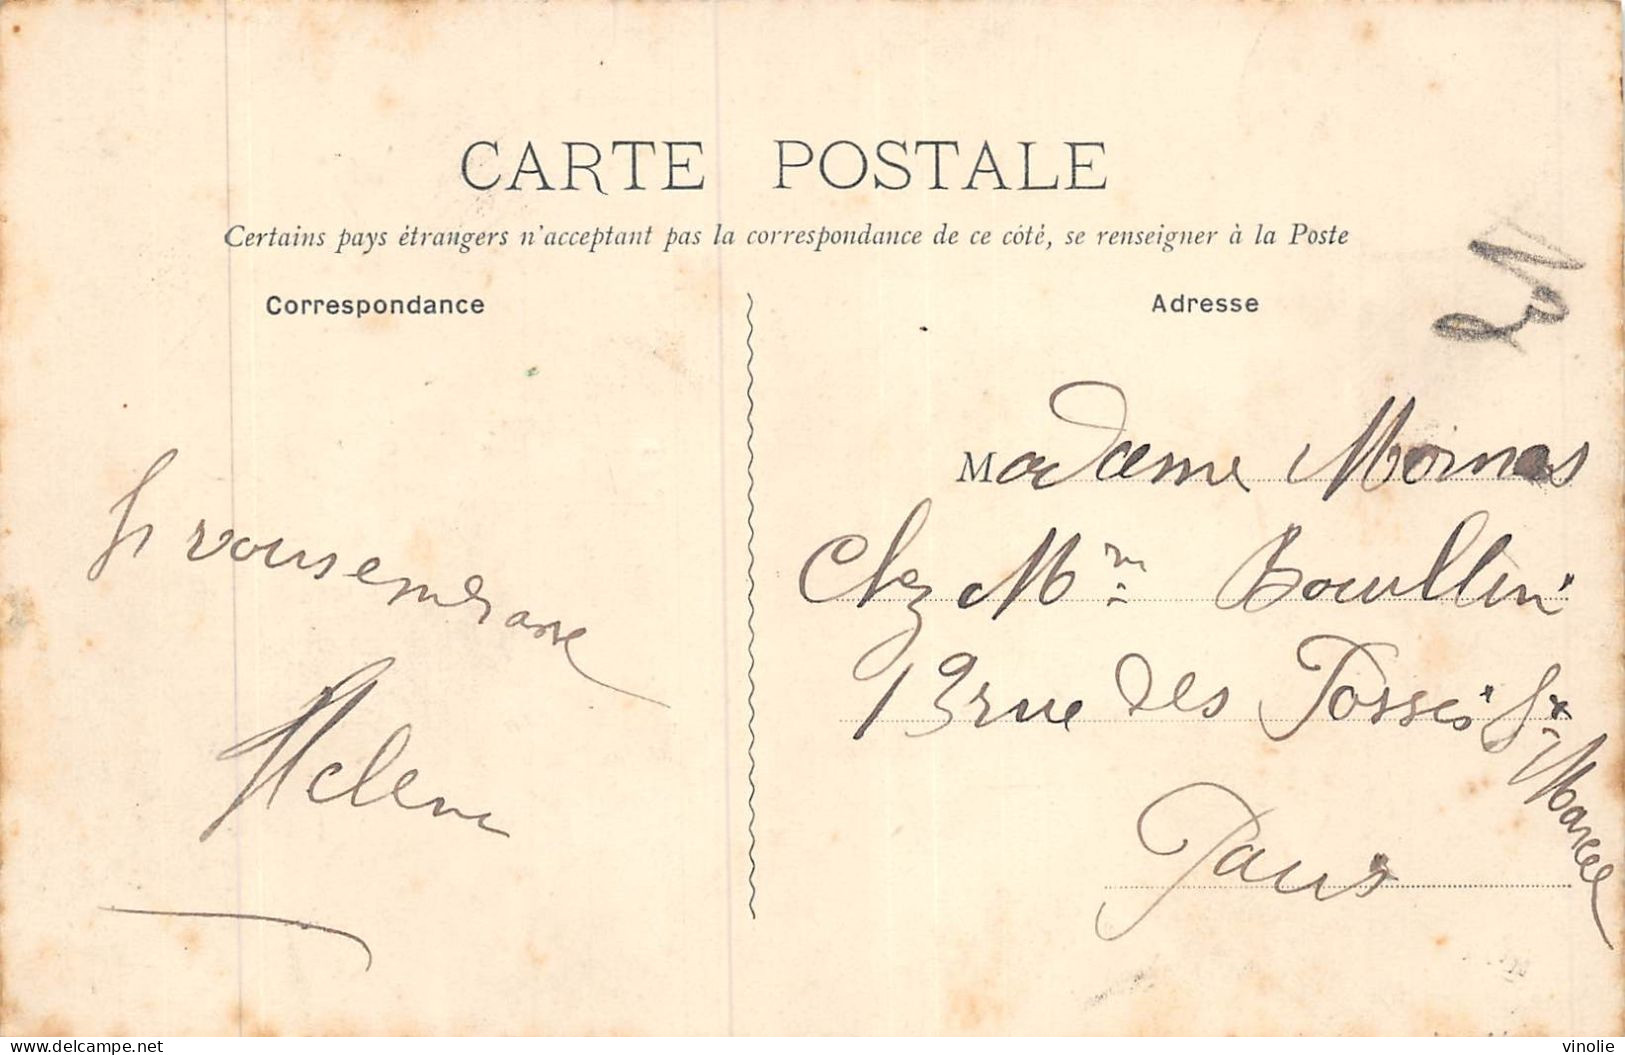 CARTE POSTALE
Certains pays étrangers n'acceptant pas la correspondance de ce côté, se renseigner à la Poste
Correspondance
Adresse
Je vous embrasse
Helene
Madame Moinas
Chez Mme Boullin
13 rue des Fossés St Marcel
Paris
delcampe.net
vinolie